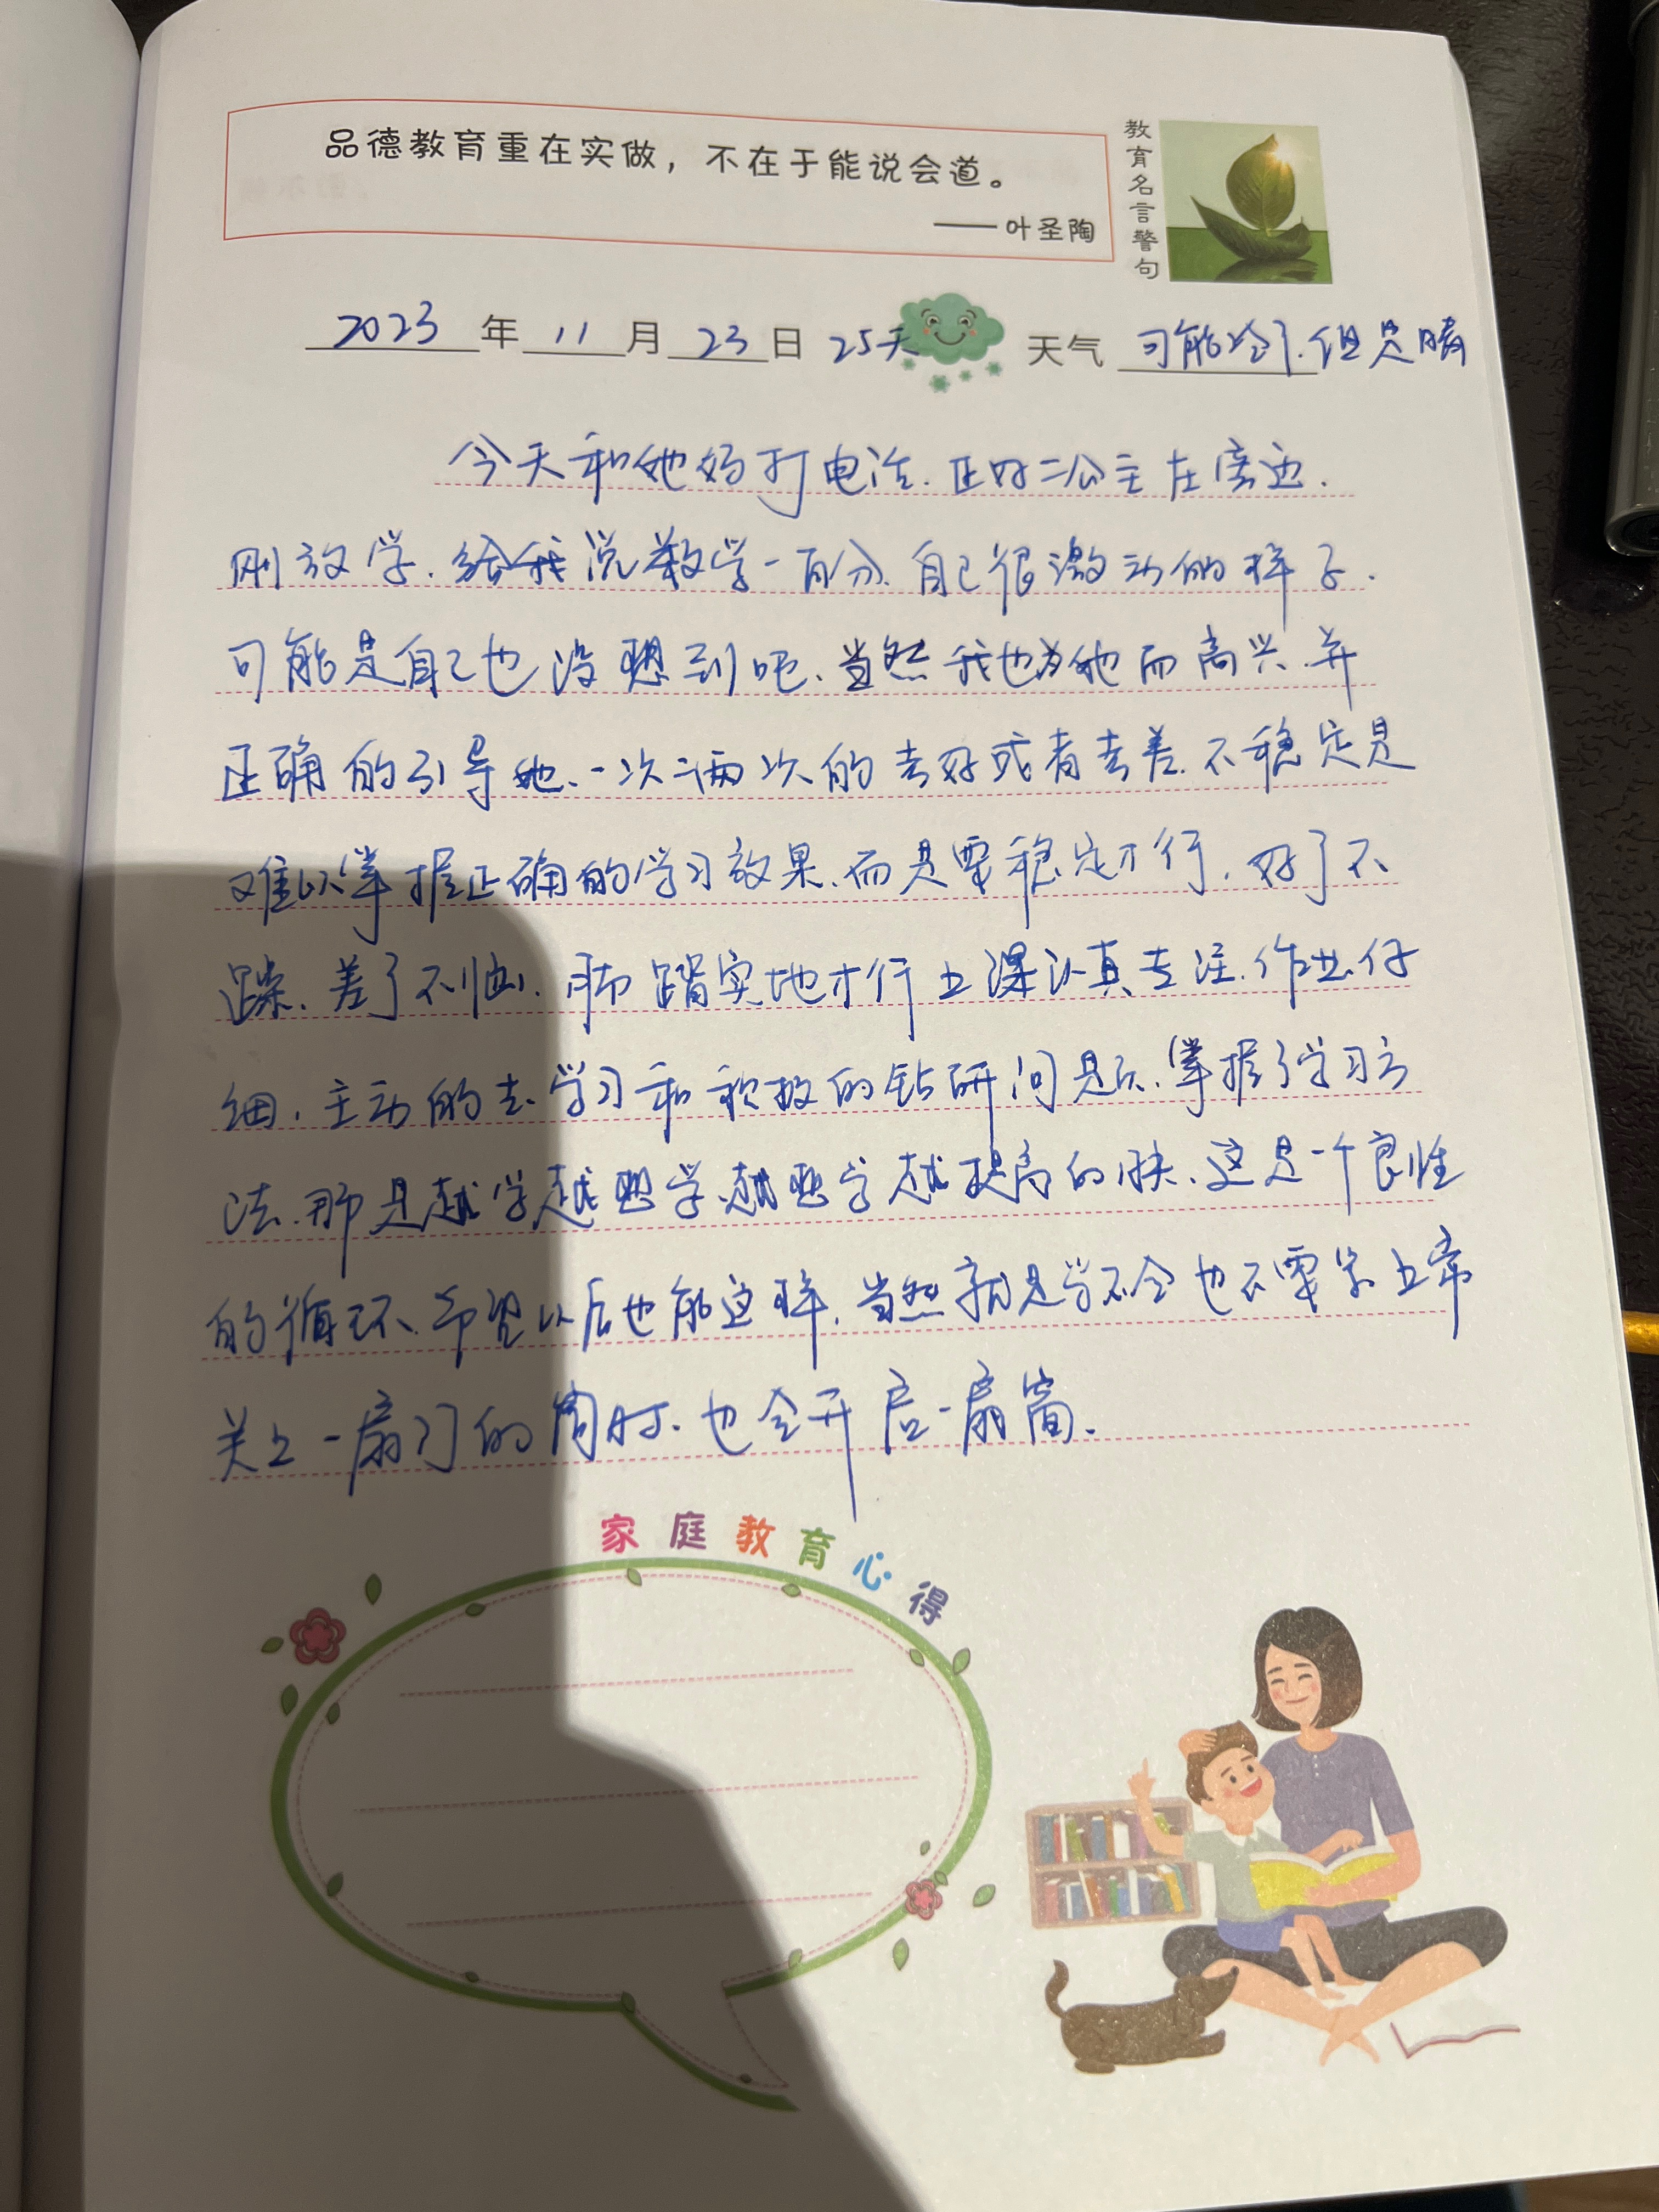 品德教育重在实做，不在于能说会道。
——叶圣陶
教育名言警句
2023年11月23日 25天 天气 可能冷了.但是晴
今天和她妈打电话.正好二公主在旁边.
刚放学.给我说数学一百分.自己很激动的样子.
可能是自己也没想到吧.当然我也为她而高兴.并
正确的引导她.一次二两次的考好或者考差.不稳定是
难以掌握正确的学习效果.而是要稳定才行.好了不
躁.差了不恼.脚踏实地才行上课认真专注.作业仔
细.主动的去学习和积极的钻研问题.掌握了学习方
法.那是越学越想学.越想学越提高的快.这是一个良性
的循环.希望以后也能这样.当然就是学不会也不要紧上帝
关上一扇门的同时.也会开启一扇窗.
家庭教育心得